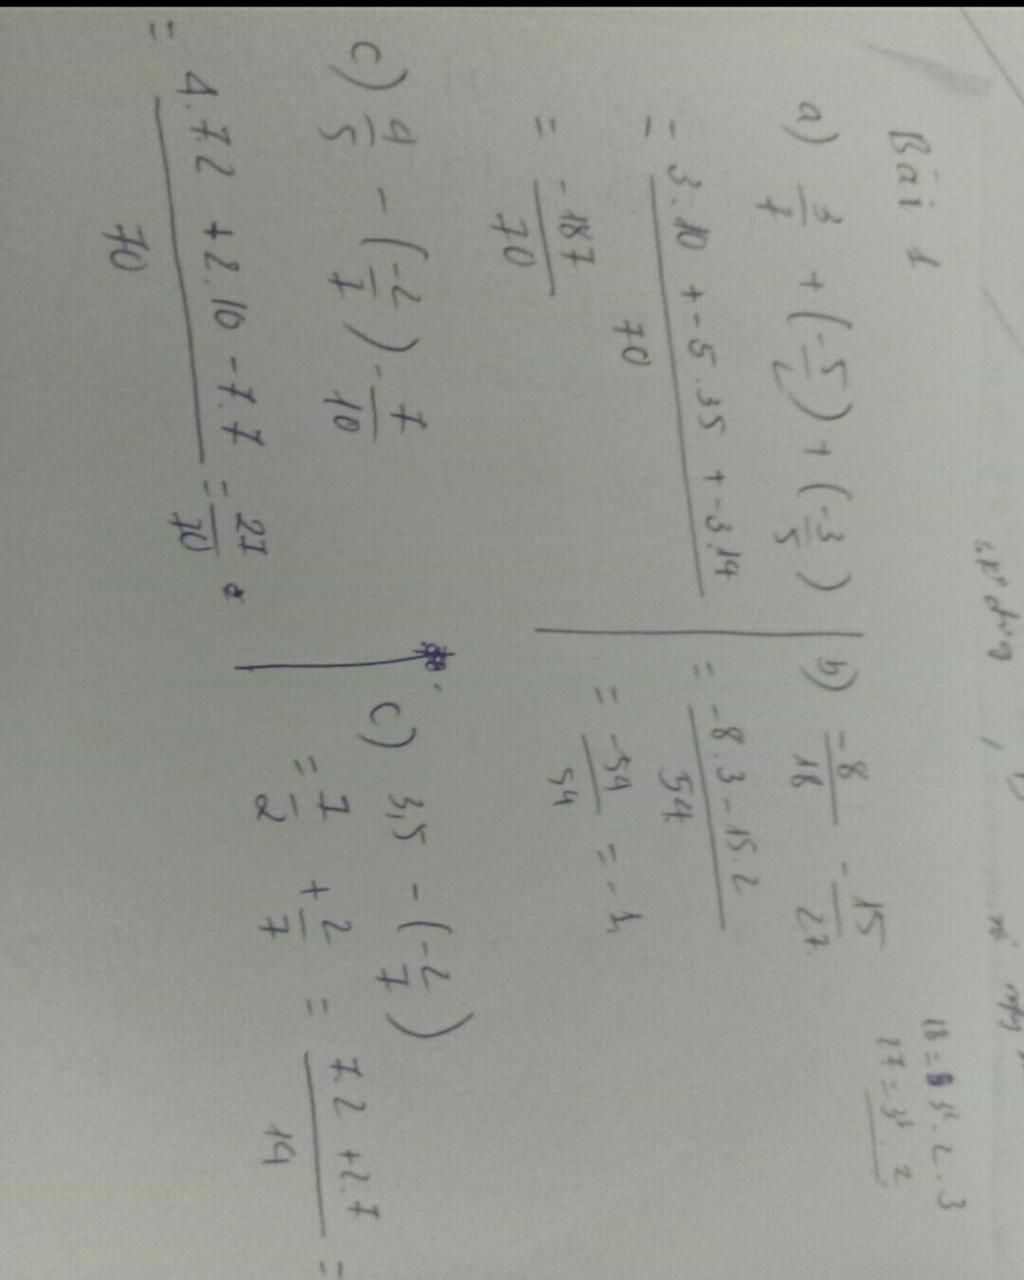 Bài 1
a) 3/7 + (-5/2) + (-3/5)
= 3.10 + -5.35 + -3.14 / 70
= -187/70
b) -8/18 - 15/27
= -8.3 - 15.2 / 54
= -54/54 = -1
c) 4/5 - (-2/7) - 7/10
= 4.7.2 + 2.10 - 7.7 / 70 = 27/70
c) 3,5 - (-2/7)
= 7/2 + 2/7 = 7.2 + 2.7 / 14 =